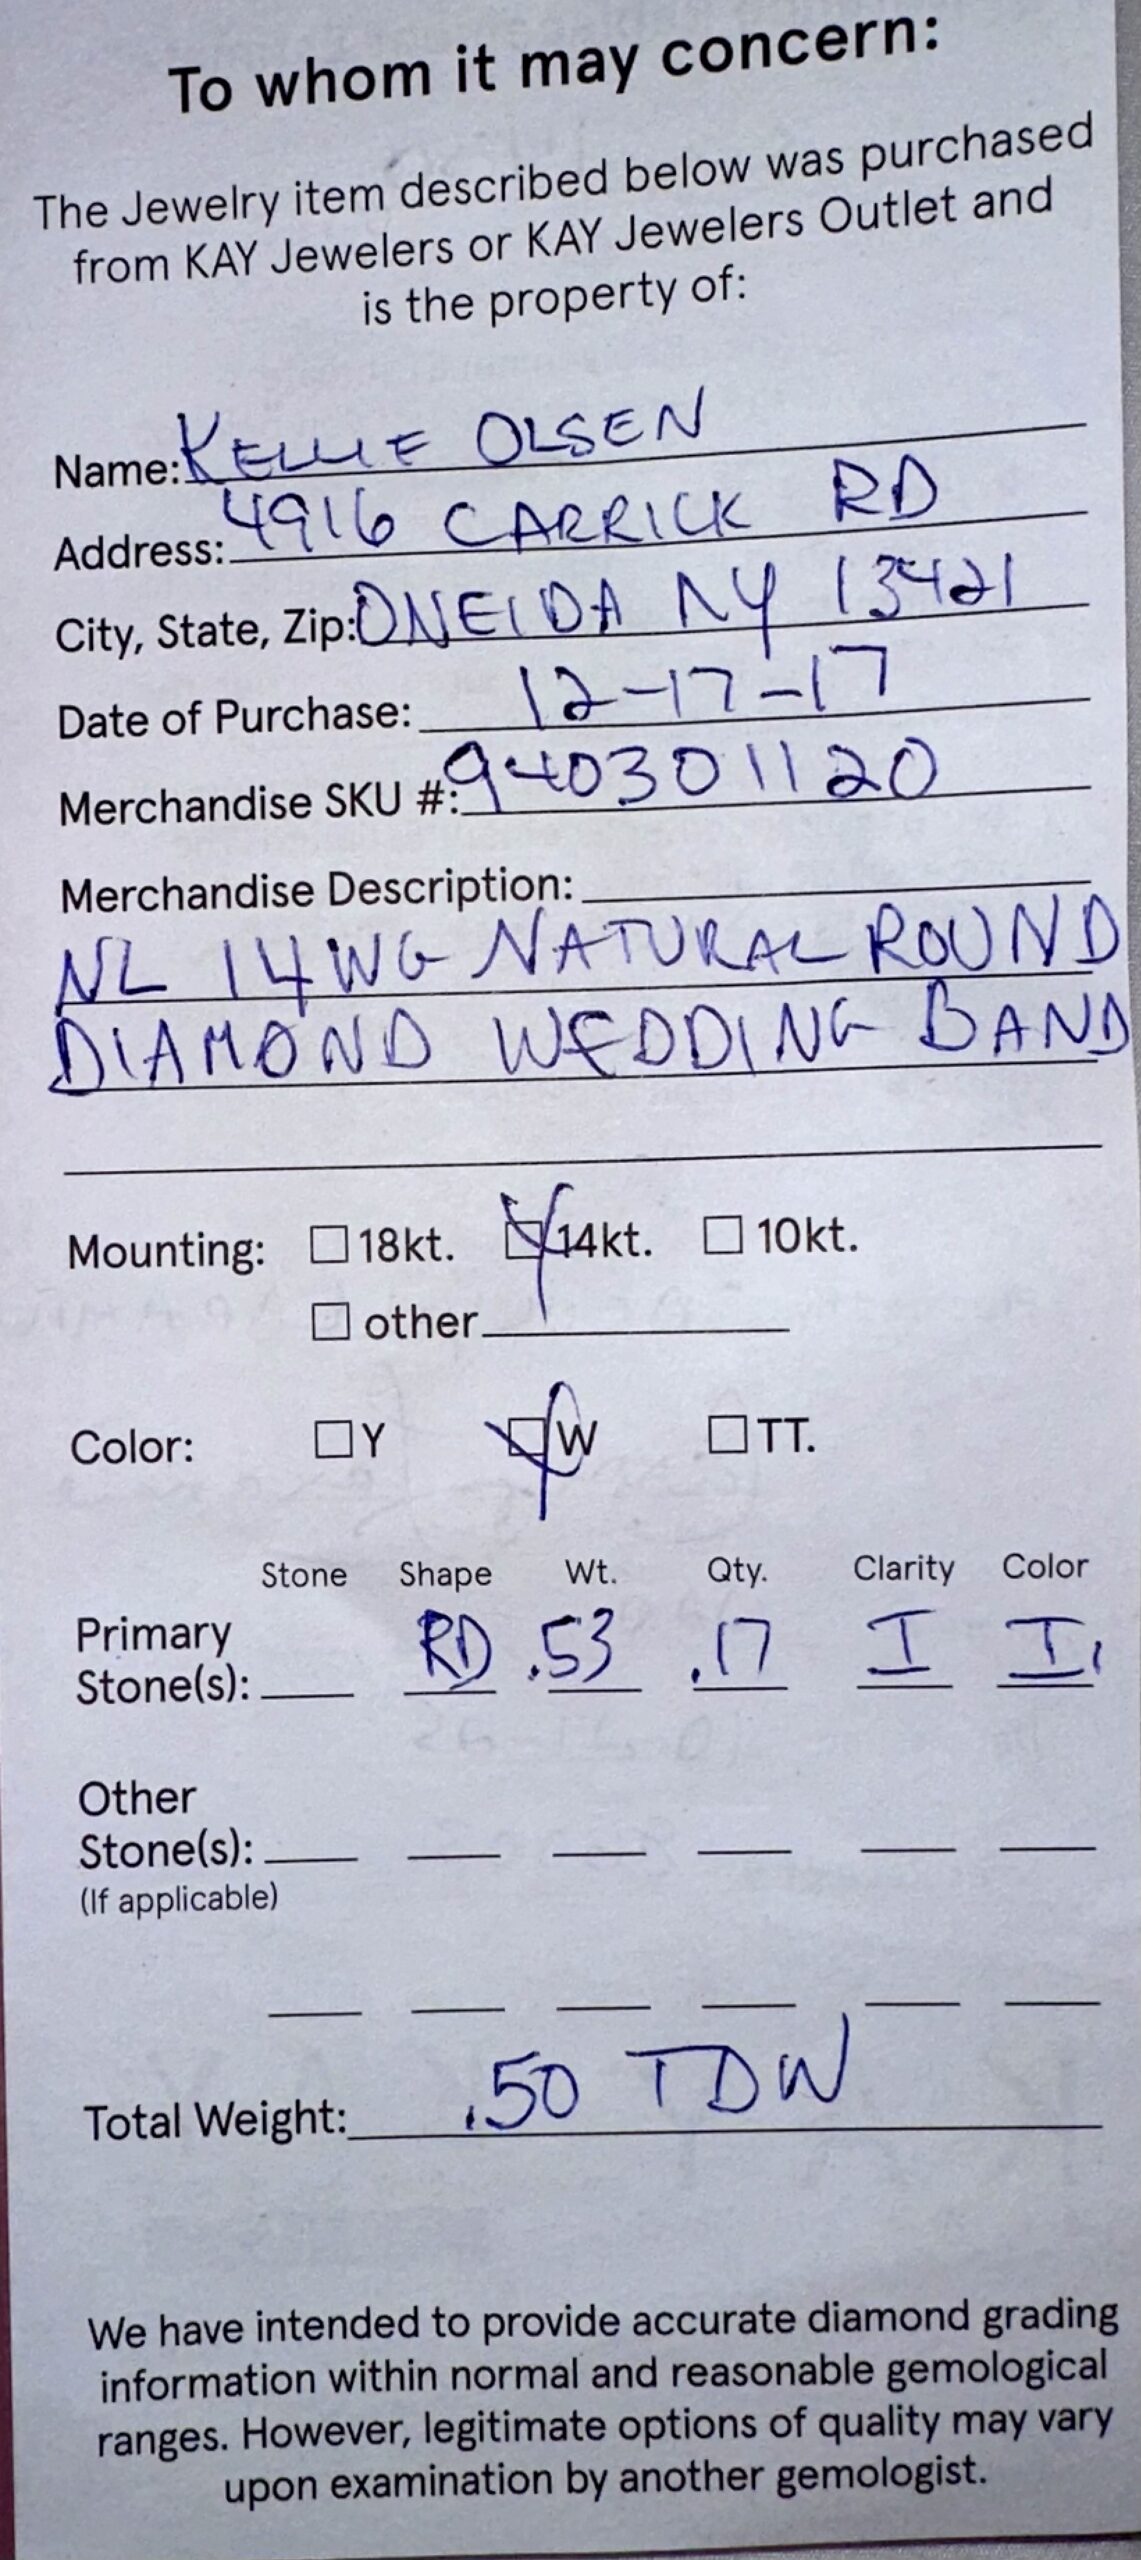 To whom it may concern:
The Jewelry item described below was purchased
from KAY Jewelers or KAY Jewelers Outlet and
is the property of:
Name: KELLIE OLSEN
Address: 4916 CARRICK RD
City, State, Zip: ONEIDA NY 13421
Date of Purchase: 12-17-17
Merchandise SKU #: 940301120
Merchandise Description:
NL 14WG NATURAL ROUND
DIAMOND WEDDING BAND
Mounting: 18kt. 14kt. 10kt.
other
Color: Y W TT.
Stone Shape Wt. Qty. Clarity Color
Primary
Stone(s): RD .53 .17 I I1
Other
Stone(s):
(If applicable)
Total Weight: .50 TDW
We have intended to provide accurate diamond grading
information within normal and reasonable gemological
ranges. However, legitimate options of quality may vary
upon examination by another gemologist.